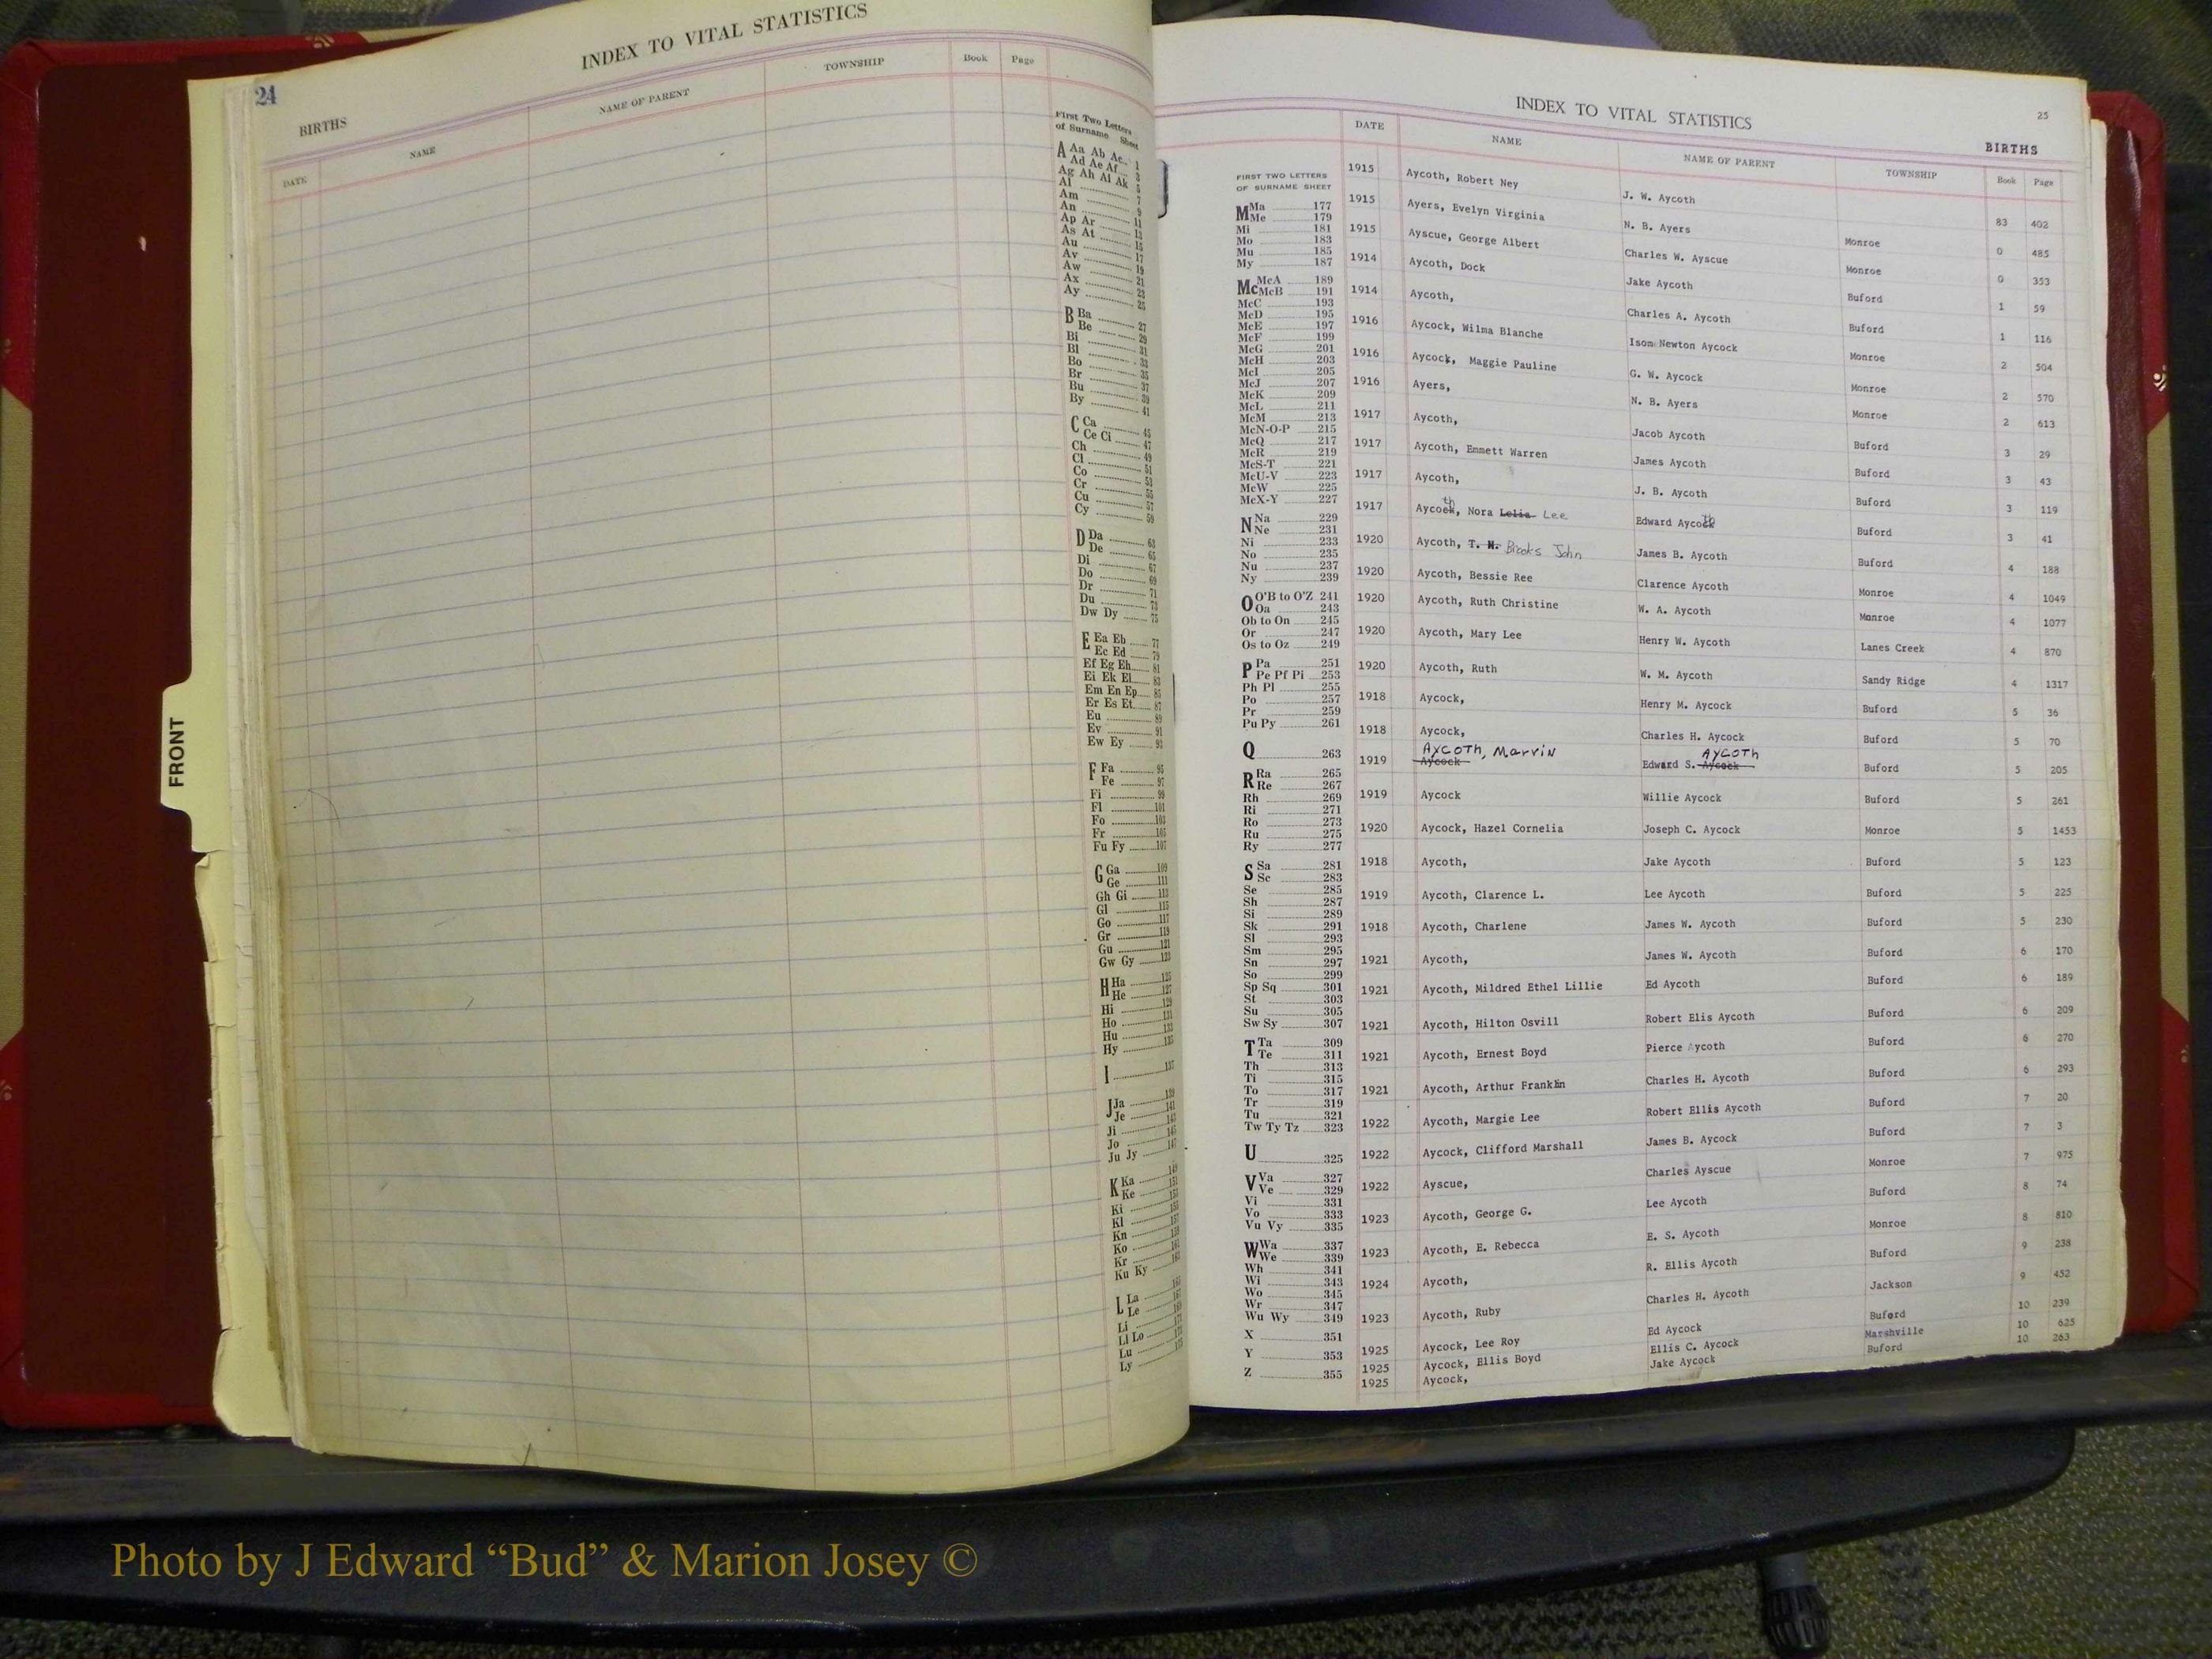 24
INDEX TO VITAL STATISTICS
BIRTHS
DATE NAME NAME OF PARENT TOWNSHIP Book Page
First Two Letters
of Surname Sheet
A Aa Ab Ac 1
Ad Ae Af 3
Ag Ah Ai Ak 5
Al 7
Am 9
An 11
Ap Ar 13
As At 15
Au 17
Av 19
Aw 21
Ax 23
Ay 25
B Ba 27
Be 29
Bi 31
Bl 33
Bo 35
Br 37
Bu 39
By 41
C Ca 45
Ce Ci 47
Ch 49
Cl 51
Co 53
Cr 55
Cu 57
Cy 59
D Da 63
De 65
Di 67
Do 69
Dr 71
Du 73
Dw Dy 75
E Ea Eb 77
Ec Ed 79
Ef Eg Eh 81
Ei Ek El 83
Em En Ep 85
Er Es Et 87
Eu 89
Ev 91
Ew Ey 93
F Fa 95
Fe 97
Fi 99
Fl 101
Fo 103
Fr 105
Fu Fy 107
G Ga 109
Ge 111
Gh Gi 113
Gl 115
Go 117
Gr 119
Gu 121
Gw Gy 123
H Ha 125
He 127
Hi 129
Ho 131
Hu 133
Hy 135
I 137
J Ja 139
Je 141
Ji 143
Jo 145
Ju Jy 147
K Ka 149
Ke 151
Ki 153
Kl
Kn 157
Ko 161
Kr 163
Ku Ky
L La
Le
Li
Ll Lo
Lu
Ly
FRONT
INDEX TO VITAL STATISTICS
25
BIRTHS
DATE NAME NAME OF PARENT TOWNSHIP Book Page
FIRST TWO LETTERS
OF SURNAME SHEET
M Ma 177
Me 179
Mi 181
Mo 183
Mu 185
My 187
Mc McA 189
McB 191
McC 193
McD 195
McE 197
McF 199
McG 201
McH 203
McI 205
McJ 207
McK 209
McL 211
McM 213
McN-O-P 215
McQ 217
McR 219
McS-T 221
McU-V 223
McW 225
McX-Y 227
N Na 229
Ne 231
Ni 233
No 235
Nu 237
Ny 239
O O'B to O'Z 241
Oa 243
Ob to On 245
Or 247
Os to Oz 249
P Pa 251
Pe Pf Pi 253
Ph Pl 255
Po 257
Pr 259
Pu Py 261
Q 263
R Ra 265
Re 267
Rh 269
Ri 271
Ro 273
Ru 275
Ry 277
S Sa 281
Sc 283
Se 285
Sh 287
Si 289
Sk 291
Sl 293
Sm 295
Sn 297
So 299
Sp Sq 301
St 303
Su 305
Sw Sy 307
T Ta 309
Te 311
Th 313
Ti 315
To 317
Tr 319
Tu 321
Tw Ty Tz 323
U 325
V Va 327
Ve 329
Vi 331
Vo 333
Vu Vy 335
W Wa 337
We 339
Wh 341
Wi 343
Wo 345
Wr 347
Wu Wy 349
X 351
Y 353
Z 355
1915 Aycoth, Robert Ney J. W. Aycoth 83 402
1915 Ayers, Evelyn Virginia N. B. Ayers Monroe 0 485
1915 Ayscue, George Albert Charles W. Ayscue Monroe 0 353
1914 Aycoth, Dock Jake Aycoth Buford 1 59
1914 Aycoth, Charles A. Aycoth Buford 1 116
1916 Aycock, Wilma Blanche Isom Newton Aycock Monroe 2 504
1916 Aycock, Maggie Pauline G. W. Aycock Monroe 2 570
1916 Ayers, N. B. Ayers Monroe 2 613
1917 Aycoth, Jacob Aycoth Buford 3 29
1917 Aycoth, Emmett Warren James Aycoth Buford 3 43
1917 Aycoth, J. B. Aycoth Buford 3 119
1917 Aycoth, Nora Lelia Lee Edward Aycoth Buford 3 41
1920 Aycoth, T. N. Brooks John James B. Aycoth Buford 4 188
1920 Aycoth, Bessie Ree Clarence Aycoth Monroe 4 1049
1920 Aycoth, Ruth Christine W. A. Aycoth Monroe 4 1077
1920 Aycoth, Mary Lee Henry W. Aycoth Lanes Creek 4 870
1920 Aycoth, Ruth W. M. Aycoth Sandy Ridge 4 1317
1918 Aycock, Henry M. Aycock Buford 5 36
1918 Aycock, Charles H. Aycock Buford 5 70
1919 Aycock AYCOTH, Marvin Edward S. Aycock AYCOTH Buford 5 205
1919 Aycock Willie Aycock Buford 5 261
1920 Aycock, Hazel Cornelia Joseph C. Aycock Monroe 5 1453
1918 Aycoth, Jake Aycoth Buford 5 123
1919 Aycoth, Clarence L. Lee Aycoth Buford 5 225
1918 Aycoth, Charlene James W. Aycoth Buford 5 230
1921 Aycoth, James W. Aycoth Buford 6 170
1921 Aycoth, Mildred Ethel Lillie Ed Aycoth Buford 6 189
1921 Aycoth, Hilton Osvill Robert Elis Aycoth Buford 6 209
1921 Aycoth, Ernest Boyd Pierce Aycoth Buford 6 270
1921 Aycoth, Arthur Franklin Charles H. Aycoth Buford 6 293
1922 Aycoth, Margie Lee Robert Ellis Aycoth Buford 7 20
1922 Aycock, Clifford Marshall James B. Aycock Buford 7 3
1922 Ayscue, Charles Ayscue Monroe 7 975
1923 Aycoth, George G. Lee Aycoth Buford 8 74
1923 Aycoth, E. Rebecca E. S. Aycoth Monroe 8 810
1924 Aycoth, R. Ellis Aycoth Buford 9 238
1923 Aycoth, Ruby Charles H. Aycoth Jackson 9 452
1925 Aycock, Lee Roy Ed Aycock Buford 10 239
1925 Aycock, Ellis Boyd Ellis C. Aycock Marshville 10 625
1925 Aycock, Jake Aycock Buford 10 263
Photo by J Edward “Bud” & Marion Josey ©